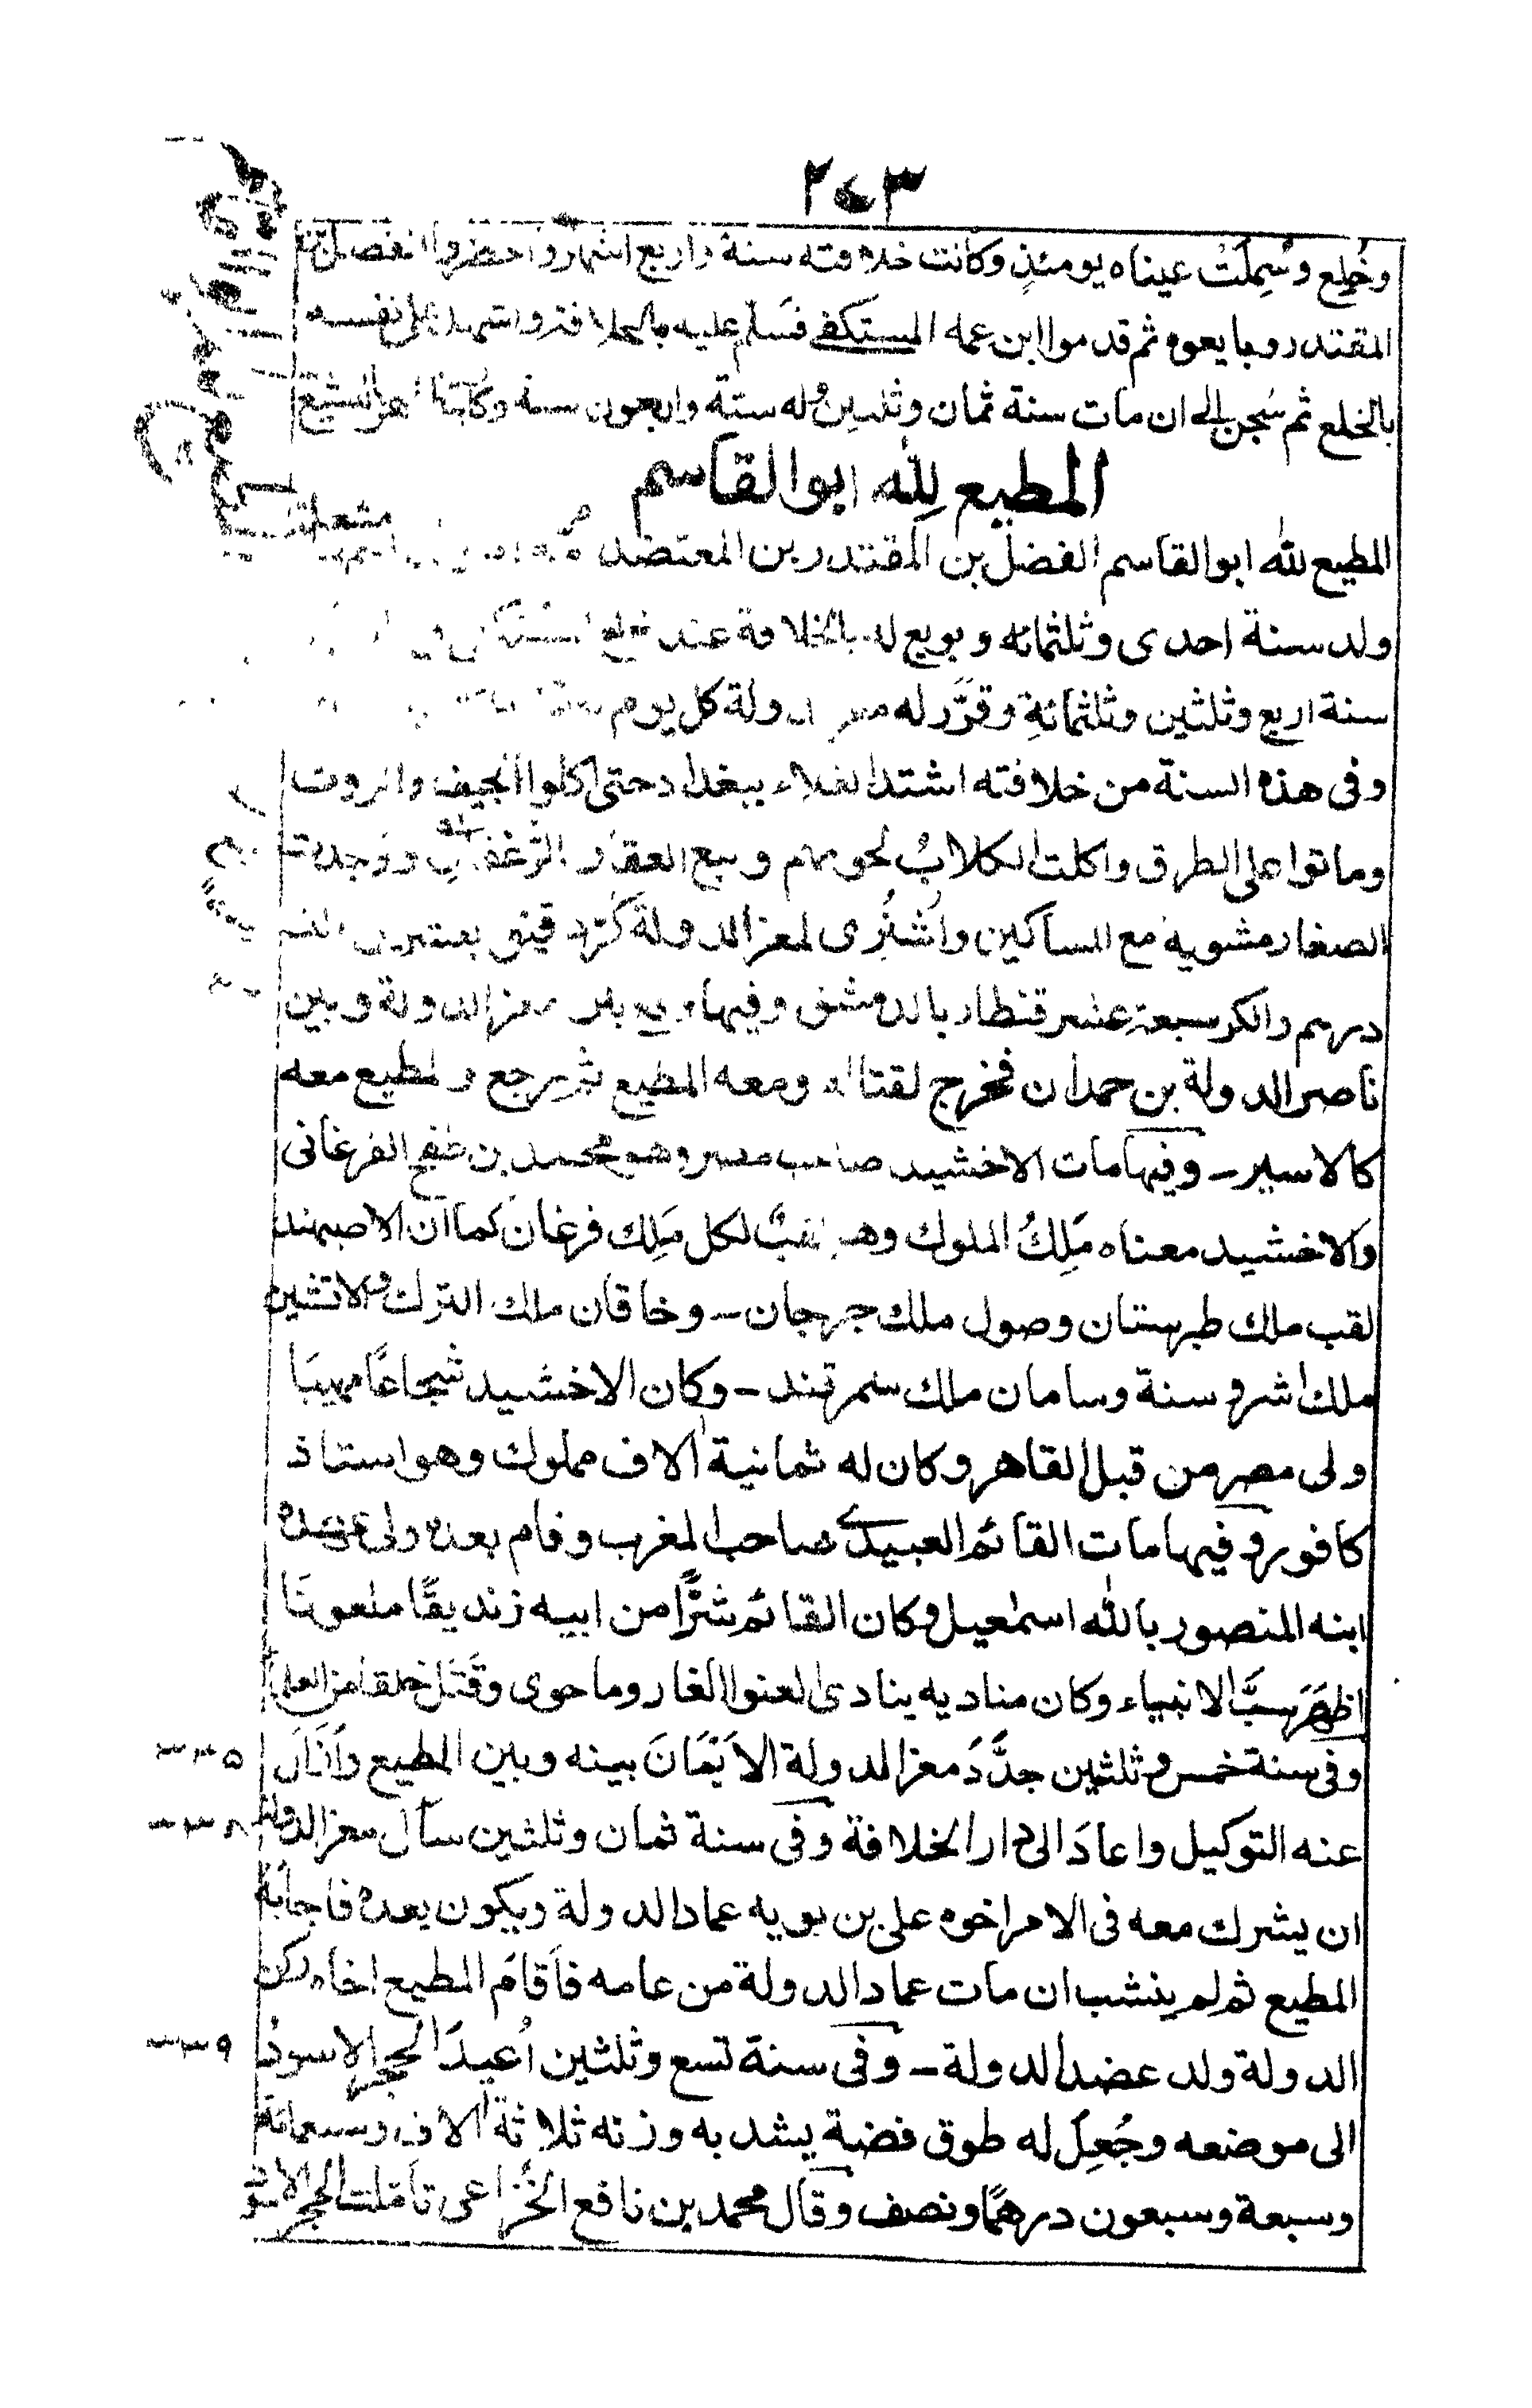 ٢٧٣
وخُلِع وسُمِلَتْ عيناه يومئذٍ وكانت خلافته سنة واربع اشهر واحضروا الفضل بن
المقتدر وبايعوه ثم قدموا ابن عمه المستكفى فسلّم عليه بالخلافة واشهد على نفسه
بالخلع ثم سُجن الى ان مات سنة ثمان وثلثين وله ستة واربعون سنة وكان يتظاهر بالتشيع
المطيع لله ابوالقاسم
المطيع لله ابوالقاسم الفضل بن المقتدر بن المعتضد مشعلة
ولد سنة احدى وثلثمائة وبويع له بالخلافة عند خلع المستكفى
سنة اربع وثلثين وثلثمائةٍ وقرَّر له معز الدولة كل يوم
وفى هذه السنة من خلافته اشتد الغلاء ببغداد حتى اكلوا الجيف والروث
وماتوا على الطرق واكلت الكلابُ لحومهم وبيع العقار بالرُّغفان ووجدت
الصغار مشوية مع المساكين واُشتُرِى لمعزالدولة كُرّ دقيق بعشرين الف
درهم والكر سبعة عشر قنطار بالدمشقى وفيها وقع بين معزالدولة وبين
ناصرالدولة بن حمدان فخرج لقتاله ومعه المطيع ثم رجع والمطيع معه
كالاسير ـ وفيها مات الاخشيد صاحب مصر وهو محمد بن طغج الفرغانى
والاخشيد معناه مَلِكُ الملوك وهو لقبٌ لكل مَلِك فرغان كما ان الاصبهند
لقب ملك طبرستان وصول ملك جرجان ـ وخاقان ملك الترك والاتشين
ملك اشروسنة وسامان ملك سمرقند ـ وكان الاخشيد شجاعًا مهيبًا
ولى مصر من قبل القاهر وكان له ثمانية اٰلاف مملوك وهو استاذ
كافور وفيها مات القائم العبيدى صاحب المغرب وقام بعده ولى عهده
ابنه المنصور بالله اسمٰعيل وكان القائم شرًّا من ابيه زنديقًا ملعونًا
اظهَرَ سبَّ الانبياء وكان مناديه ينادى العنوا الغار وما حوى وقَتَل خلقا من العلماء
وفى سنة خمس وثلثين جدَّدَ معزالدولة الاَيْمَانَ بينه وبين المطيع وأزال ٣٣٥
عنه التوكيل واعادَ الى دار الخلافة وفى سنة ثمان وثلثين سأل معزالدولة ٣٣٨
ان يشرك معه فى الامر اخوه على بن بويه عمادالدولة ويكون بعده فاجابهُ
المطيع ثم لم ينشب ان مات عمادالدولة من عامه فأقامَ المطيع اخاه ركن
الدولة ولد عضدالدولة ـ وفى سنة تسع وثلثين اُعيدَ الحجر الاسود ٣٣٩
الى موضعه وجُعِلَ له طوق فضة يشد به وزنه ثلاثة اٰلاف وسبعمائة
وسبعة وسبعون درهمًا ونصف وقال محمد بن نافع الخُزاعى تأمّلت الحجر الاسود